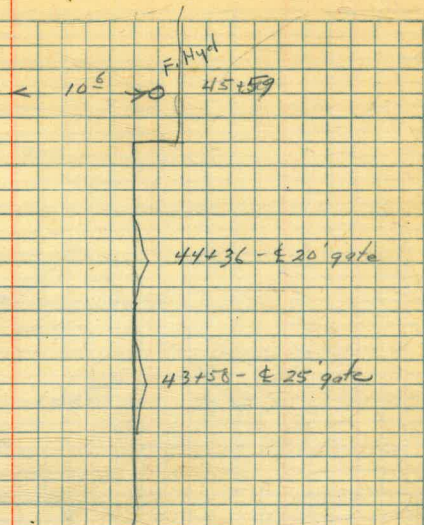 F. Hyd
10⁶ 45+59
44+36 - ℄ 20' gate
43+58 - ℄ 25' gate